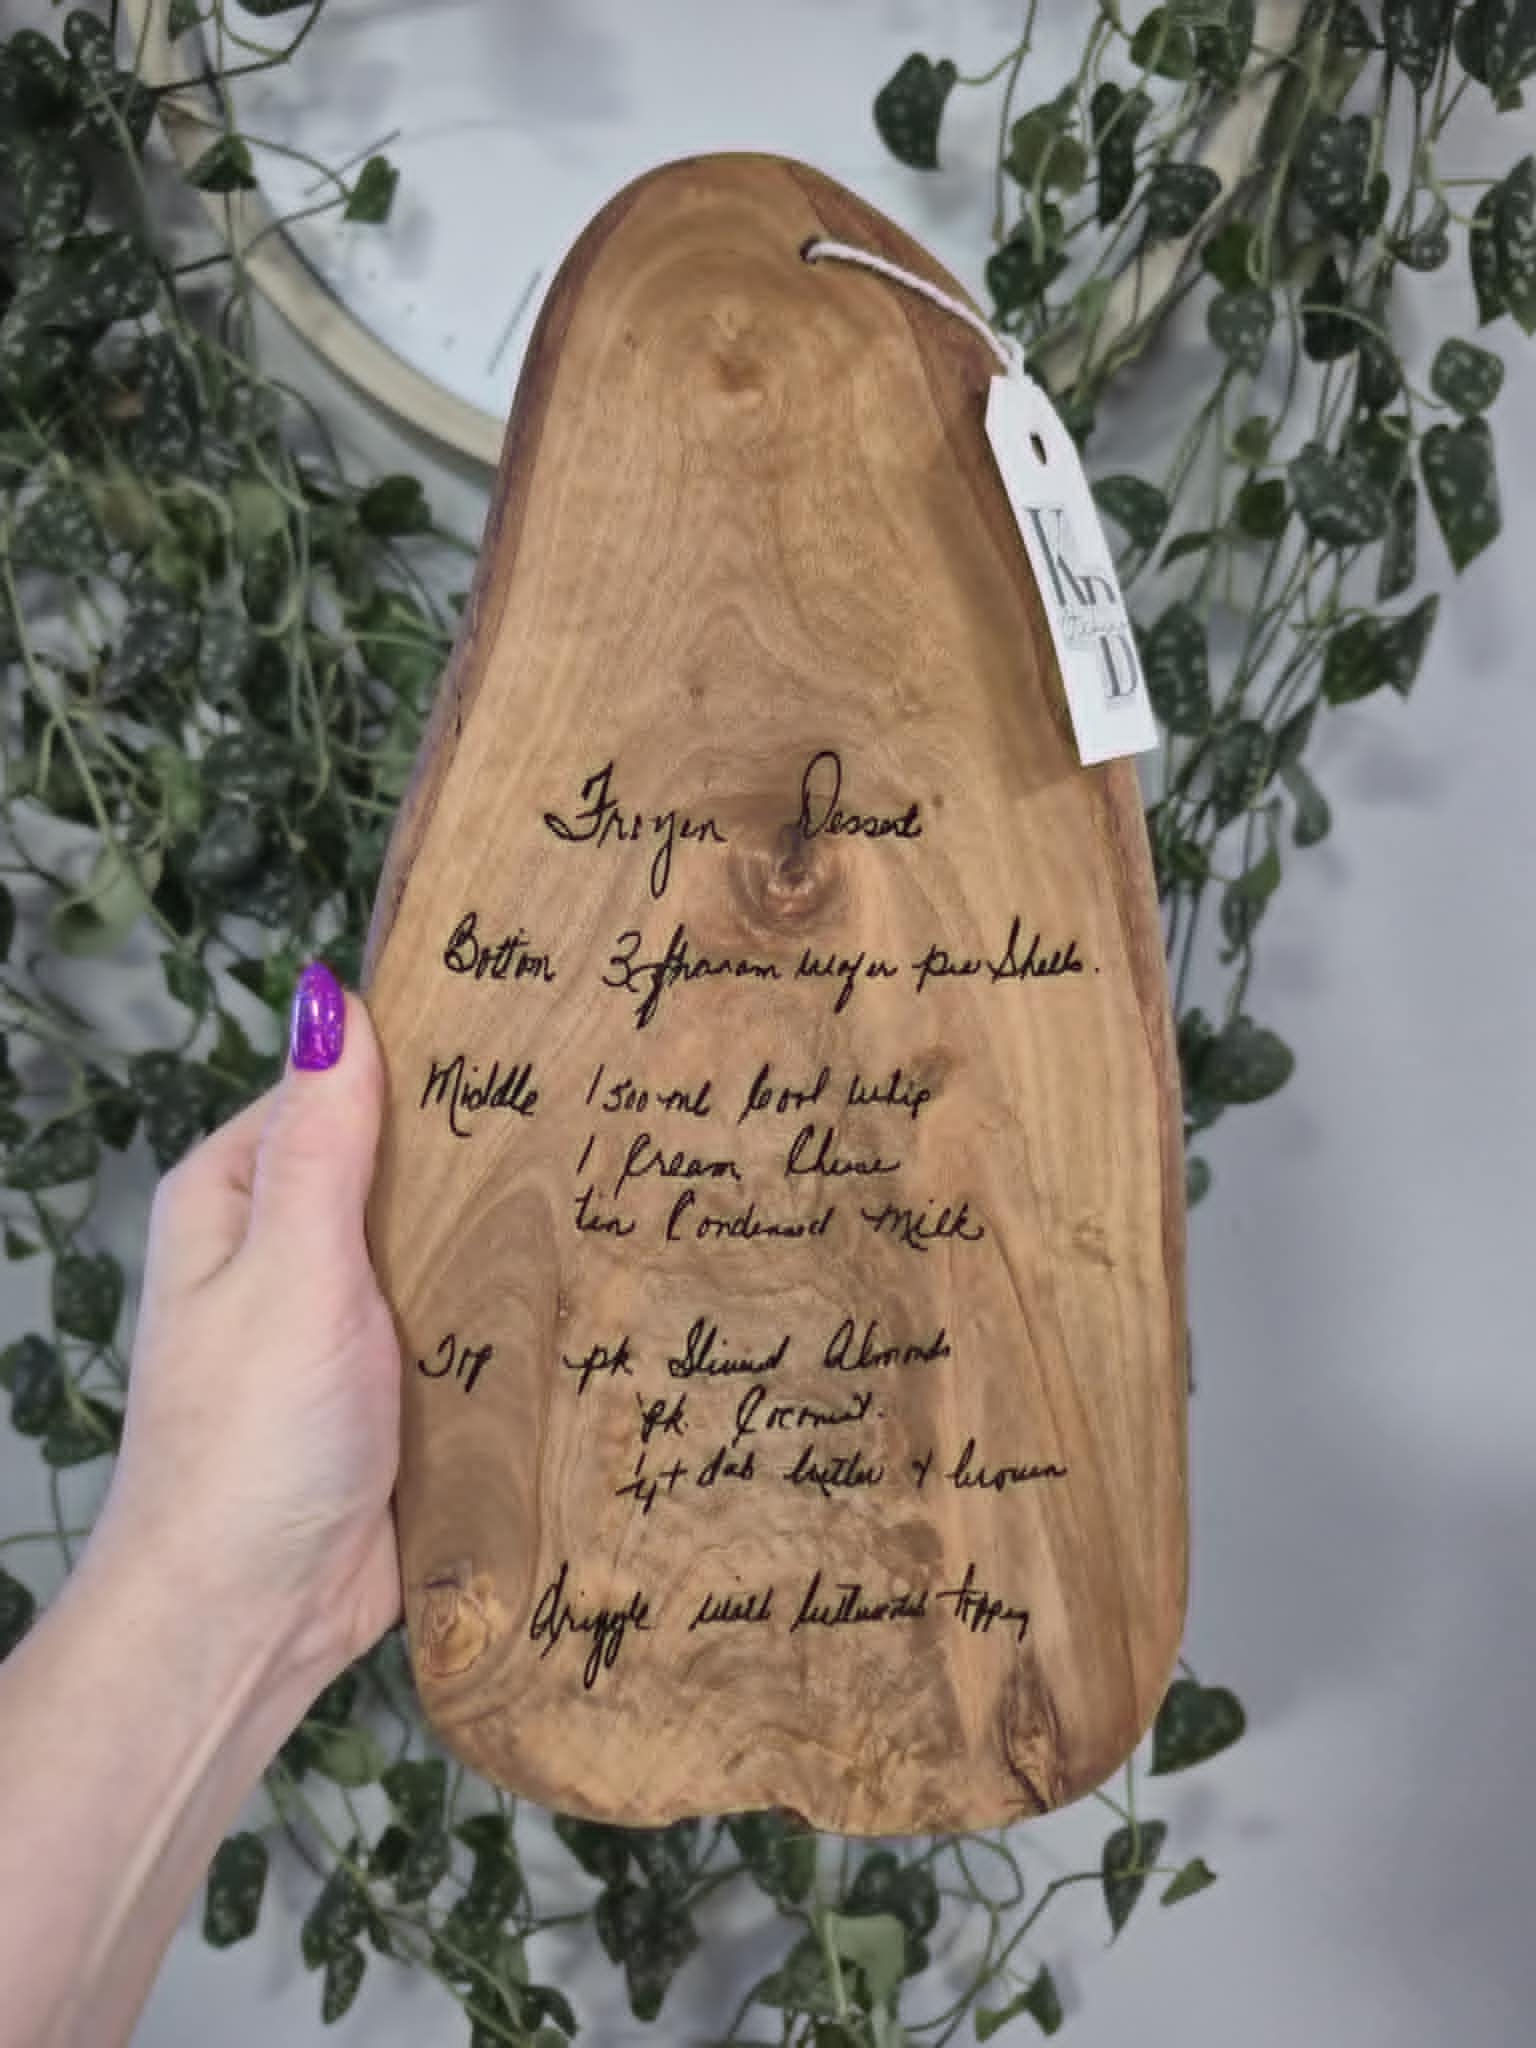 Frozen Dessert
Bottom 3 graham wafer pie Shells.
Middle 1 500 ml Cool Whip
1 Cream Cheese
tin Condensed Milk
Top pk Slivered Almonds
pk. Coconut.
1/4 + dab butter & brown
Drizzle with butterscotch topping
Kn
D